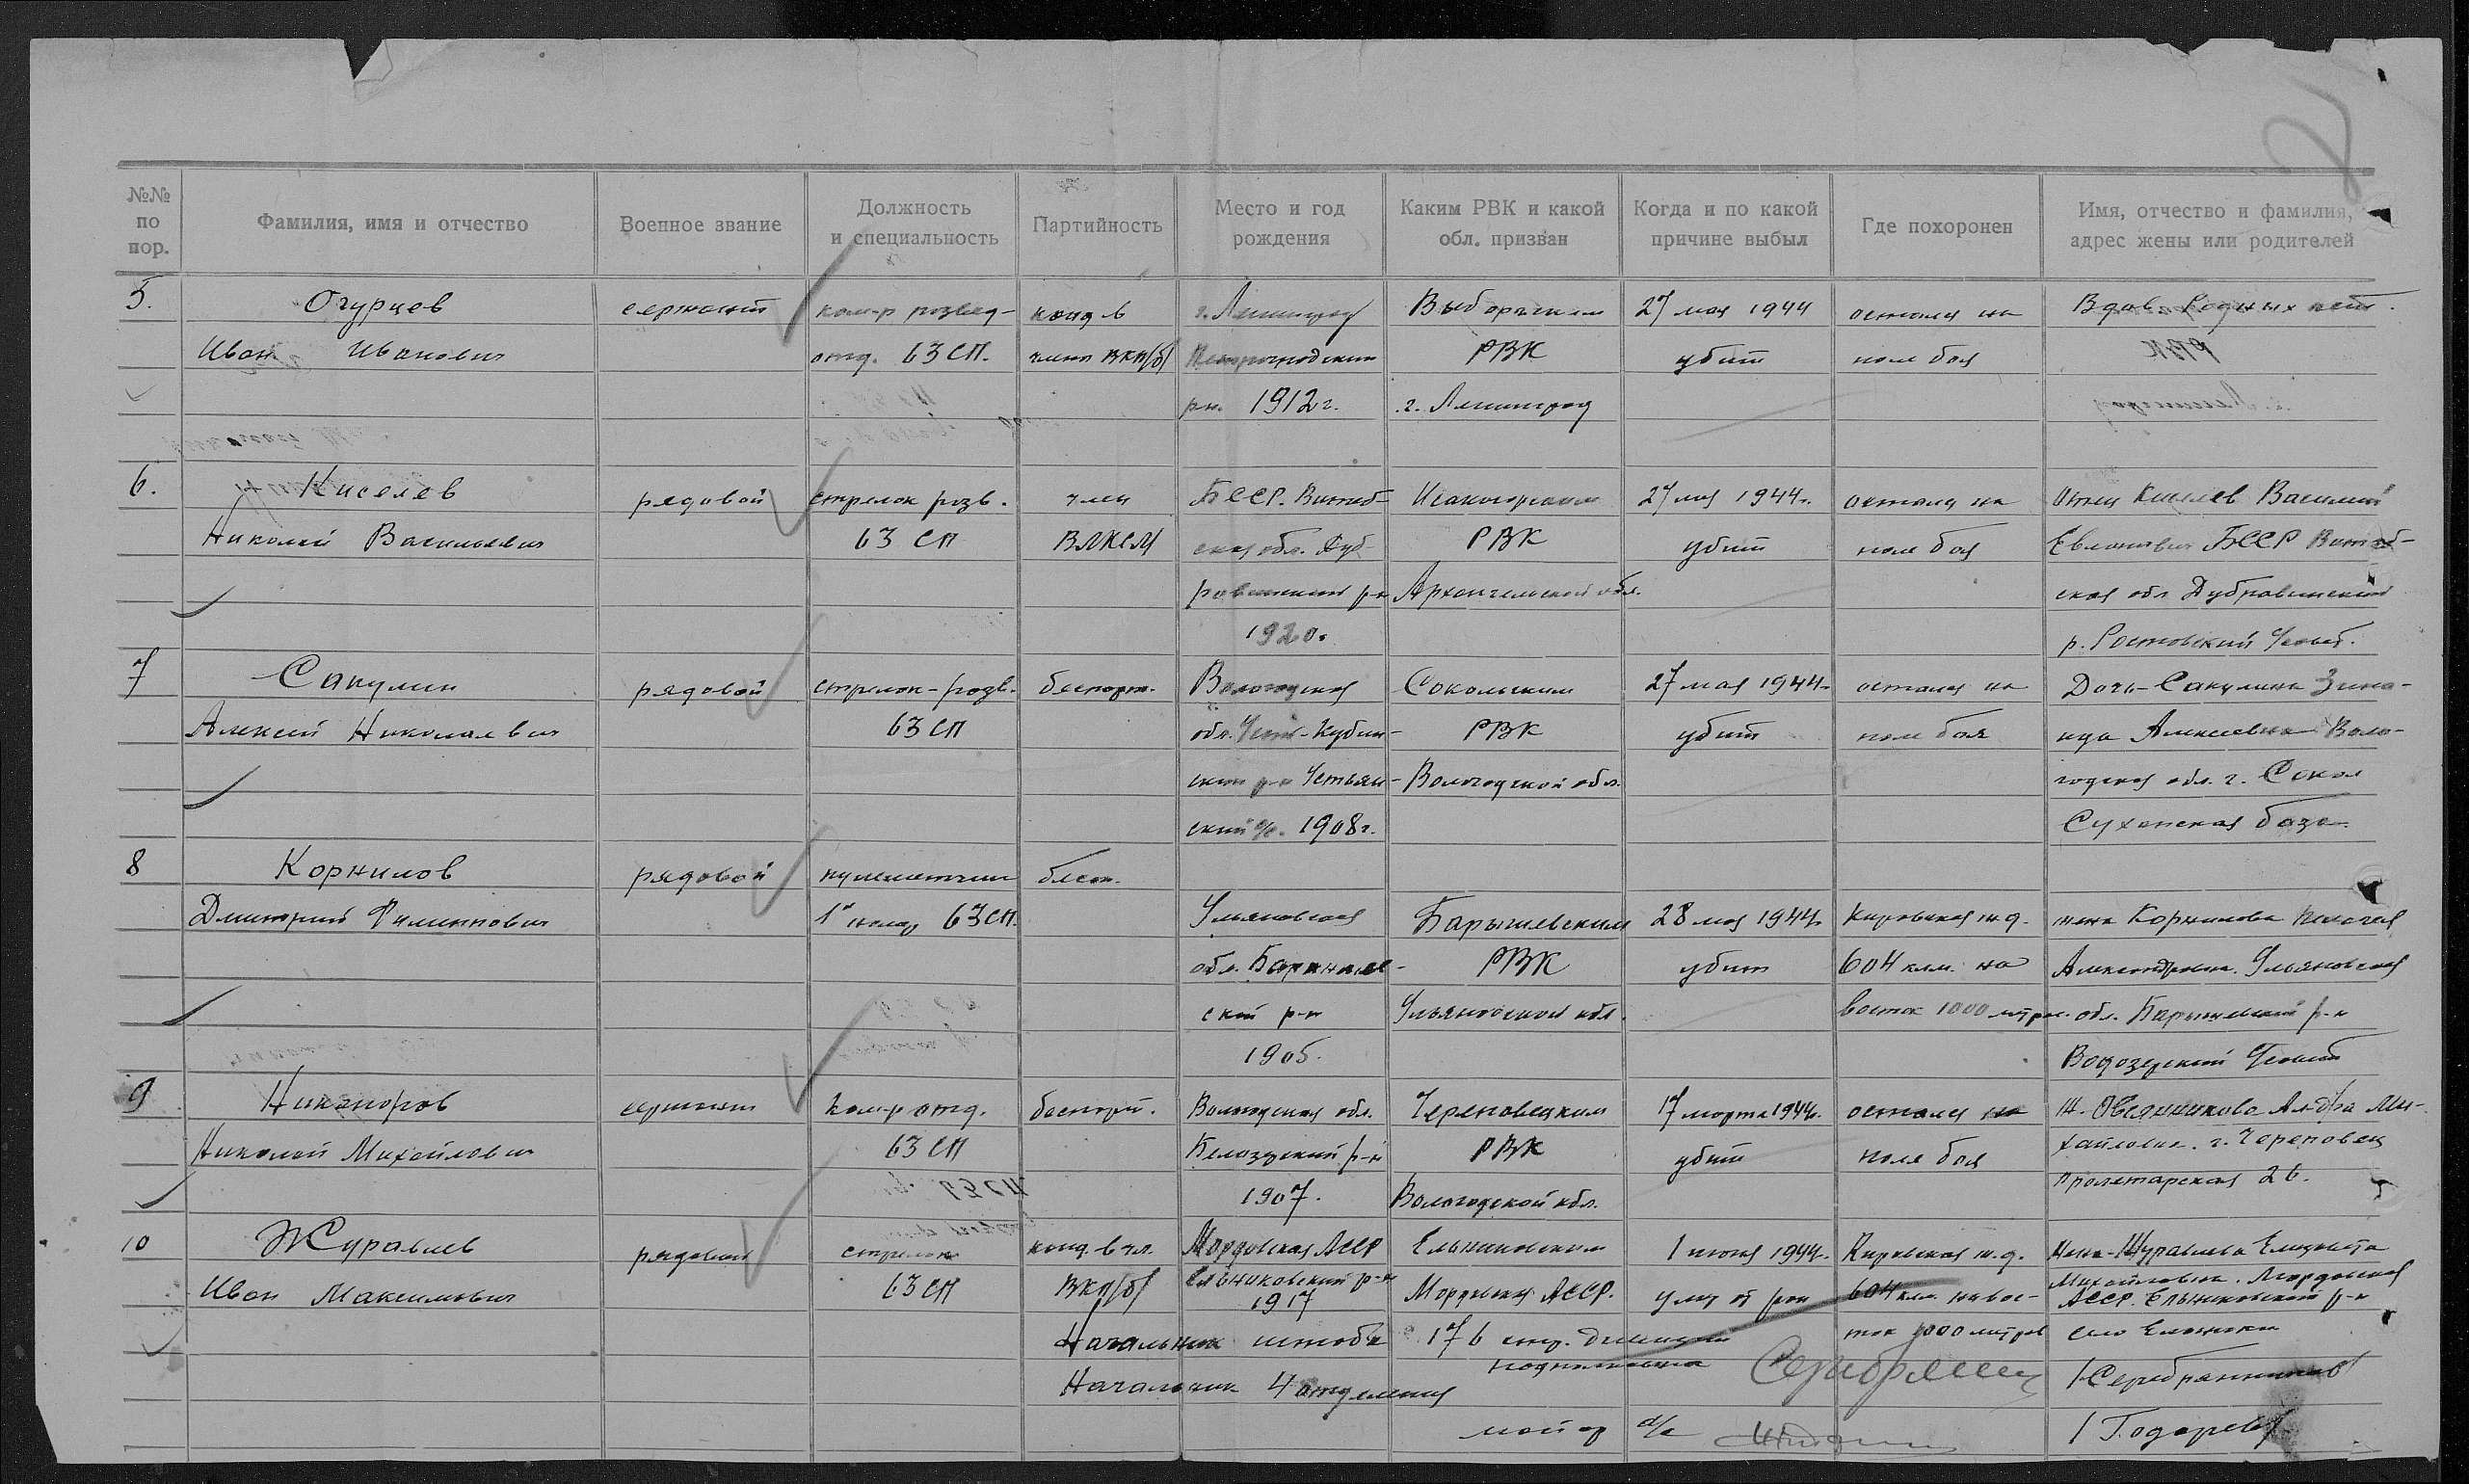 №№ по пор.
Фамилия, имя и отчество
Военное звание
Должность и специальность
Партийность
Место и год рождения
Каким РВК и какой обл. призван
Когда и по какой причине выбыл
Где похоронен
Имя, отчество и фамилия, адрес жены или родителей
5.
Огурцев
Иван Иванович
сержант
ком-р развед-
отд. 63 СП.
канд. в
члены ВКП/б/
г. Ленинград
рн. 1912 г.
Выборгским
РВК
г. Ленинград
27 мая 1944
убит
остался на
поле боя
Вдов. Родных нет.
6.
Киселев
Николай Васильевич
рядовой
стрелок разв.
63 СП
член
ВЛКСМ
БССР. Витеб-
ская обл. Дуб-
ровенский р-н
1920.
Исакогорским
РВК
Архангельской обл.
27 мая 1944 г.
убит
остался на
поле боя
Отец Киселев Василий
БССР Витеб-
ская обл Дубровинский
р. Ростовский с/совет.
7
Сакулин
Алексей Николаевич
рядовой
стрелок-разв.
63 СП
беспарт.
Вологодская
обл. Усть-Кубин-
ский р-н Устьян-
ский с/с. 1908 г.
Сокольским
РВК
Вологодской обл.
27 мая 1944
убит
остался на
поле боя
Дочь-Сакулина Зина-
ида Алексеевна Воло-
годская обл. г. Сокол
Сухонская база
8
Корнилов
Дмитрий Филиппович
рядовой
пулеметчик
1й номер 63 СП.
бесп.
Ульяновская
обл. Барышев-
ский р-н
1905.
Барышевским
РВК
Ульяновской обл.
28 мая 1944
убит
Кировская ж.д.
604 клм. на
восток 1000 метров.
жена Корнилова Пелагея
Александровна. Ульяновская
обл. Барышский р-н
9
Никаноров
Николай Михайлович
сержант
Ком-р отд.
63 СП
беспарт.
Вологодская обл.
Белозерский р-н
1907.
Череповецким
РВК
Вологодской обл.
17 марта 1944.
убит
остался на
поле боя
Ж. Овсянникова Ал-дра Ми-
хайловна. г. Череповец
Пролетарская 26.
10
Журавлев
Иван Максимович
рядовой
стрелок
63 СП
канд. в чл.
ВКП/б/
Мордовская АССР
Ельниковский р-н
1917
Ельниковским
Мордовская АССР.
1 июня 1944.
умер от ран
Кировская ж.д.
604 клм. на вос-
ток 1000 метров
Жена-Журавлева Елизавета
Михайловна. Мордовская
АССР. Ельниковский р-н
село Ельники
Начальник штаба 176 стр. дивизии
подполковник
/Серебрянников/
Начальник 4 отделения
майор а/с
/Тодорев/